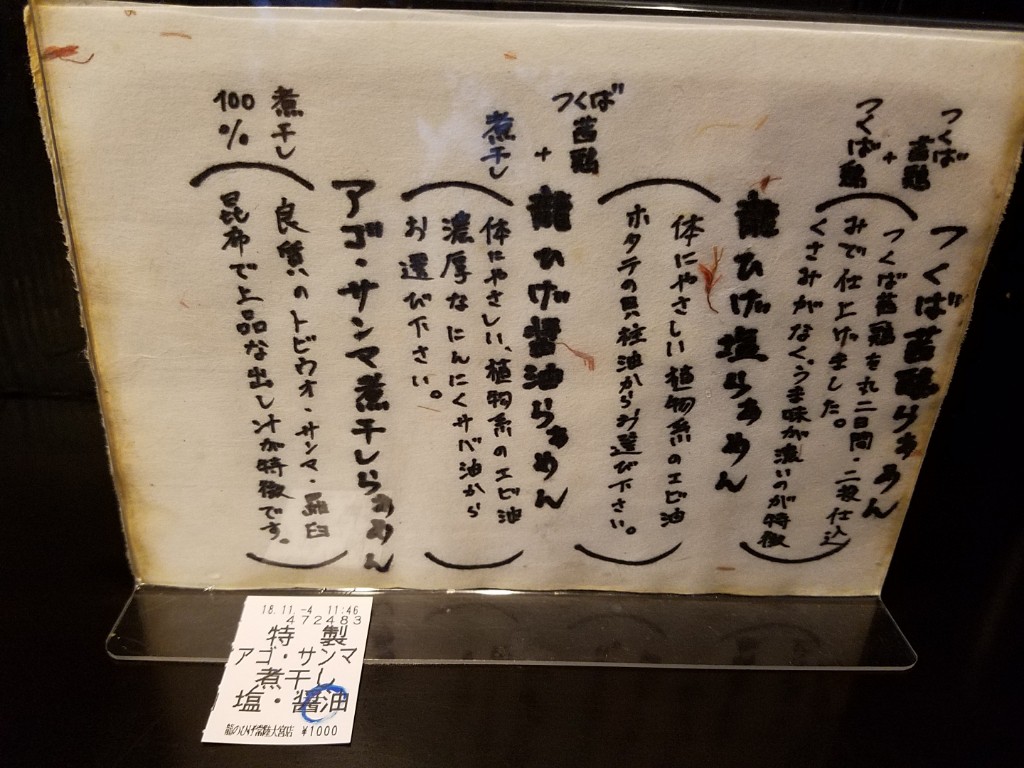 つくば
茜鶏
+
つくば鶏
つくば茜鶏らぁめん
(つくば茜鶏を丸二日間・二夜仕込
みで仕上げました。
くさみがなく、うま味が濃いのが特徴)
龍ひげ塩らぁめん
(体にやさしい植物系のエビ油
ホタテの貝柱油からお選び下さい。)
つくば
茜鶏
+
煮干し
龍ひげ醤油らぁめん
(体にやさしい、植物系のエビ油
濃厚なにんにくサバ油から
お選び下さい。)
アゴ・サンマ煮干しらぁめん
煮干し
100%
(良質のトビウオ・サンマ・羅臼
昆布で上品な出し汁が特徴です。)
18.11.-4 11:46
472483
特製
アゴ・サンマ
煮干し
塩・醤油
龍のひげ常陸大宮店 ¥1000